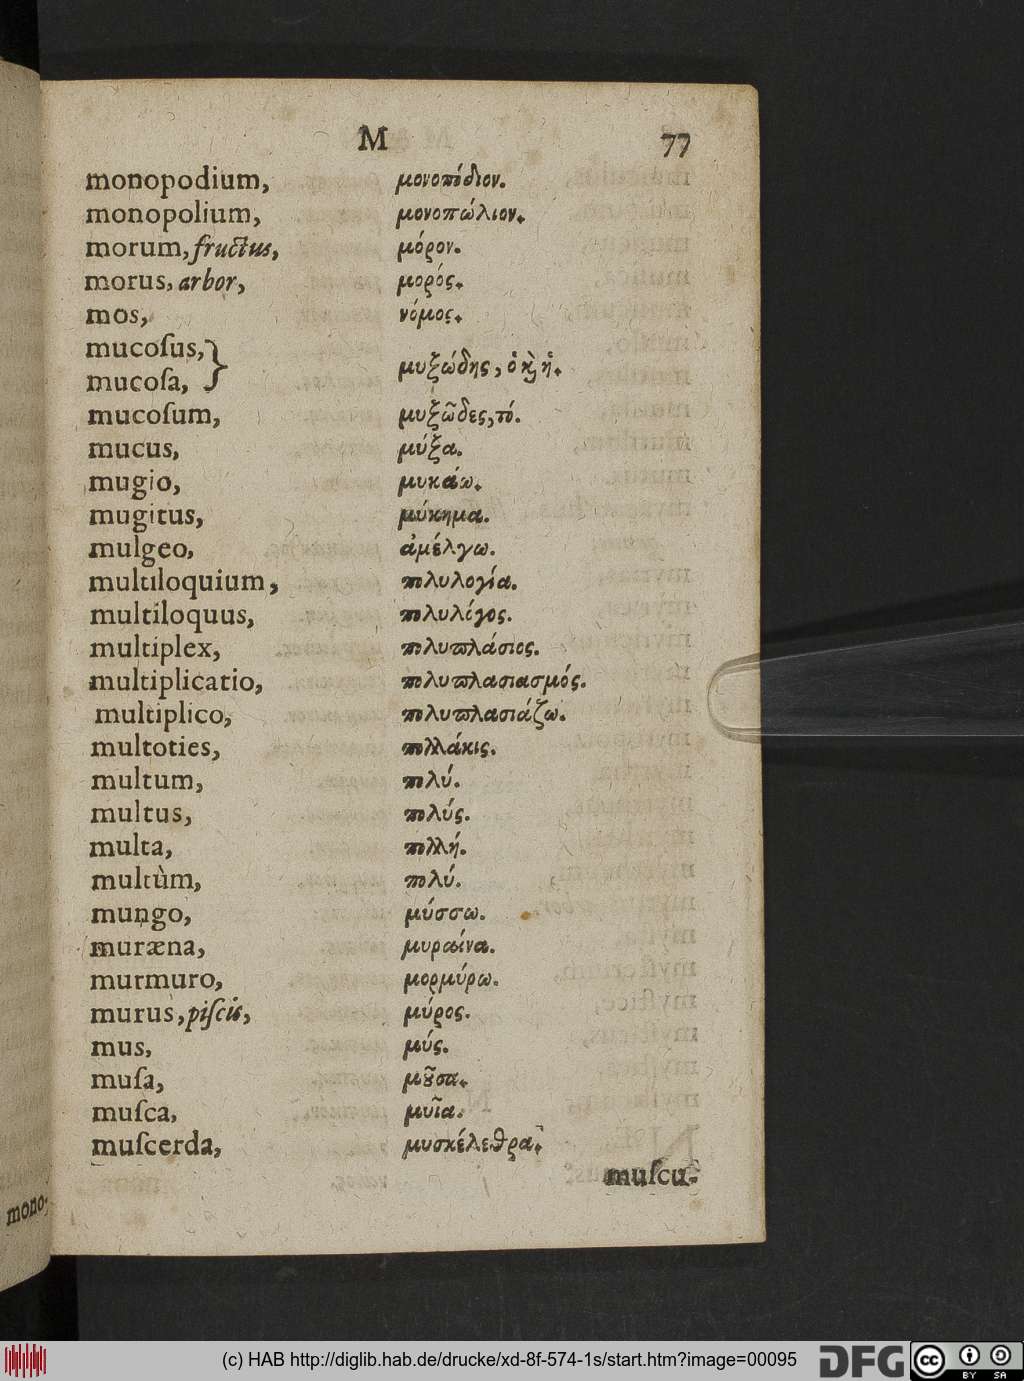 M 77
monopodium, μονοπόδιον.
monopolium, μονοπώλιον.
morum, fructus, μόρον.
morus, arbor, μορός.
mos, νόμος.
mucoſus,}
mucoſa,} μυξώδης, ὁ καὶ ἡ.
mucoſum, μυξῶδες, τό.
mucus, μύξα.
mugio, μυκάω.
mugitus, μύκημα.
mulgeo, ἀμέλγω.
multiloquium, πολυλογία.
multiloquus, πολυλόγος.
multiplex, πολυπλάσιος.
multiplicatio, πολυπλασιασμός.
multiplico, πολυπλασιάζω.
multoties, πολλάκις.
multum, πολύ.
multus, πολύς.
multa, πολλή.
multùm, πολύ.
mungo, μύσσω.
muræna, μυραίνα.
murmuro, μορμύρω.
murus, piſcis, μύρος.
mus, μύς.
muſa, μοῦσα.
muſca, μυῖα.
muſcerda, μυσκέλεθρα.
muſcu-
mono-
(c) HAB http://diglib.hab.de/drucke/xd-8f-574-1s/start.htm?image=00095
DFG cc BY SA